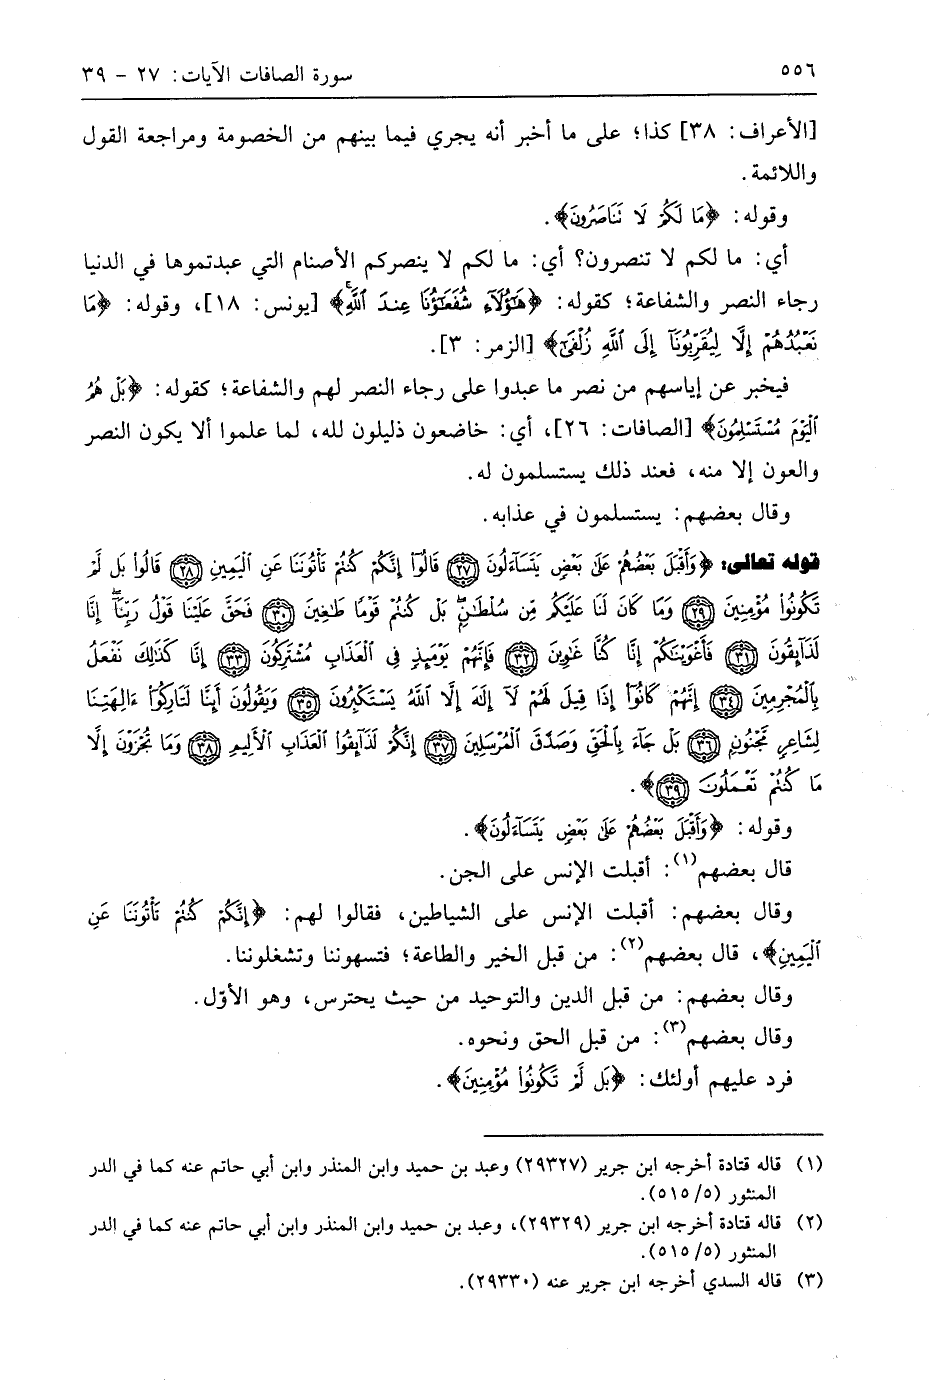 ٥٥٦ سورة الصافات الآيات: ٢٧ - ٣٩
[الأعراف: ٣٨] كذا؛ على ما أخبر أنه يجري فيما بينهم من الخصومة ومراجعة القول
واللائمة.
وقوله: ﴿مَا لَكُمْ لَا تَنَاصَرُونَ﴾.
أي: ما لكم لا تنصرون؟ أي: ما لكم لا ينصركم الأصنام التي عبدتموها في الدنيا
رجاء النصر والشفاعة؛ كقوله: ﴿هَٰٓؤُلَآءِ شُفَعَٰٓؤُنَا عِندَ ٱللَّهِۚ﴾ [يونس: ١٨]، وقوله: ﴿مَا
نَعْبُدُهُمْ إِلَّا لِيُقَرِّبُونَآ إِلَى ٱللَّهِ زُلْفَىٰٓ﴾ [الزمر: ٣].
فيخبر عن إياسهم من نصر ما عبدوا على رجاء النصر لهم والشفاعة؛ كقوله: ﴿بَلْ هُمُ
ٱلْيَوْمَ مُسْتَسْلِمُونَ﴾ [الصافات: ٢٦]، أي: خاضعون ذليلون لله، لما علموا ألا يكون النصر
والعون إلا منه، فعند ذلك يستسلمون له.
وقال بعضهم: يستسلمون في عذابه.
قوله تعالى: ﴿وَأَقْبَلَ بَعْضُهُمْ عَلَىٰ بَعْضٍ يَتَسَآءَلُونَ ٢٧ قَالُوٓا۟ إِنَّكُمْ كُنتُمْ تَأْتُونَنَا عَنِ ٱلْيَمِينِ ٢٨ قَالُوا۟ بَل لَّمْ
تَكُونُوا۟ مُؤْمِنِينَ ٢٩ وَمَا كَانَ لَنَا عَلَيْكُم مِّن سُلْطَٰنٍۭۖ بَلْ كُنتُمْ قَوْمًا طَٰغِينَ ٣٠ فَحَقَّ عَلَيْنَا قَوْلُ رَبِّنَآۖ إِنَّا
لَذَآئِقُونَ ٣١ فَأَغْوَيْنَٰكُمْ إِنَّا كُنَّا غَٰوِينَ ٣٢ فَإِنَّهُمْ يَوْمَئِذٍ فِى ٱلْعَذَابِ مُشْتَرِكُونَ ٣٣ إِنَّا كَذَٰلِكَ نَفْعَلُ
بِٱلْمُجْرِمِينَ ٣٤ إِنَّهُمْ كَانُوٓا۟ إِذَا قِيلَ لَهُمْ لَآ إِلَٰهَ إِلَّا ٱللَّهُ يَسْتَكْبِرُونَ ٣٥ وَيَقُولُونَ أَئِنَّا لَتَارِكُوٓا۟ ءَالِهَتِنَا
لِشَاعِرٍ مَّجْنُونٍۭ ٣٦ بَلْ جَآءَ بِٱلْحَقِّ وَصَدَّقَ ٱلْمُرْسَلِينَ ٣٧ إِنَّكُمْ لَذَآئِقُوا۟ ٱلْعَذَابِ ٱلْأَلِيمِ ٣٨ وَمَا تُجْزَوْنَ إِلَّا
مَا كُنتُمْ تَعْمَلُونَ ٣٩﴾.
وقوله: ﴿وَأَقْبَلَ بَعْضُهُمْ عَلَىٰ بَعْضٍ يَتَسَآءَلُونَ﴾.
قال بعضهم(١): أقبلت الإنس على الجن.
وقال بعضهم: أقبلت الإنس على الشياطين، فقالوا لهم: ﴿إِنَّكُمْ كُنتُمْ تَأْتُونَنَا عَنِ
ٱلْيَمِينِ﴾، قال بعضهم(٢): من قبل الخير والطاعة؛ فتسهوننا وتشغلوننا.
وقال بعضهم: من قبل الدين والتوحيد من حيث يحترس، وهو الأوّل.
وقال بعضهم(٣): من قبل الحق ونحوه.
فرد عليهم أولئك: ﴿بَل لَّمْ تَكُونُوا۟ مُؤْمِنِينَ﴾.
(١) قاله قتادة أخرجه ابن جرير (٢٩٣٢٧) وعبد بن حميد وابن المنذر وابن أبي حاتم عنه كما في الدر
المنثور (٥/ ٥١٥).
(٢) قاله قتادة أخرجه ابن جرير (٢٩٣٢٩)، وعبد بن حميد وابن المنذر وابن أبي حاتم عنه كما في الدر
المنثور (٥/ ٥١٥).
(٣) قاله السدي أخرجه ابن جرير عنه (٢٩٣٣٠).